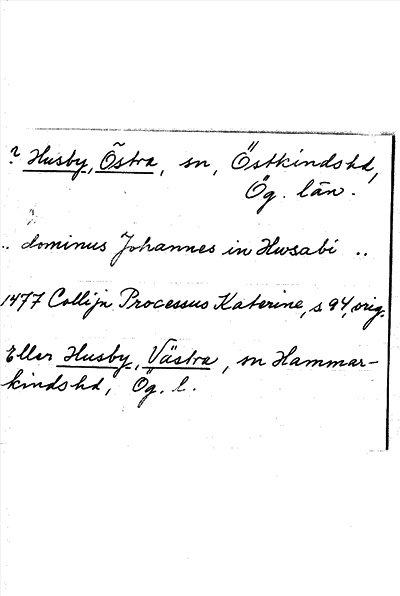 ? Husby, Östra, sn, Östkinds hd,
Ög. län.
.. dominus Johannes in Hwsabi ..
1477 Collijn Processus Katerine, s 94, orig.
Eller Husby, Västra, sn Hammar-
kinds hd, Ög. l.